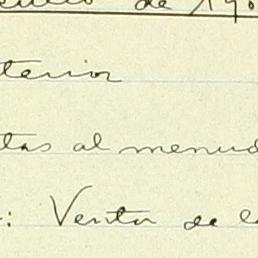 de 190
terior
tas al menud
: Venta de la